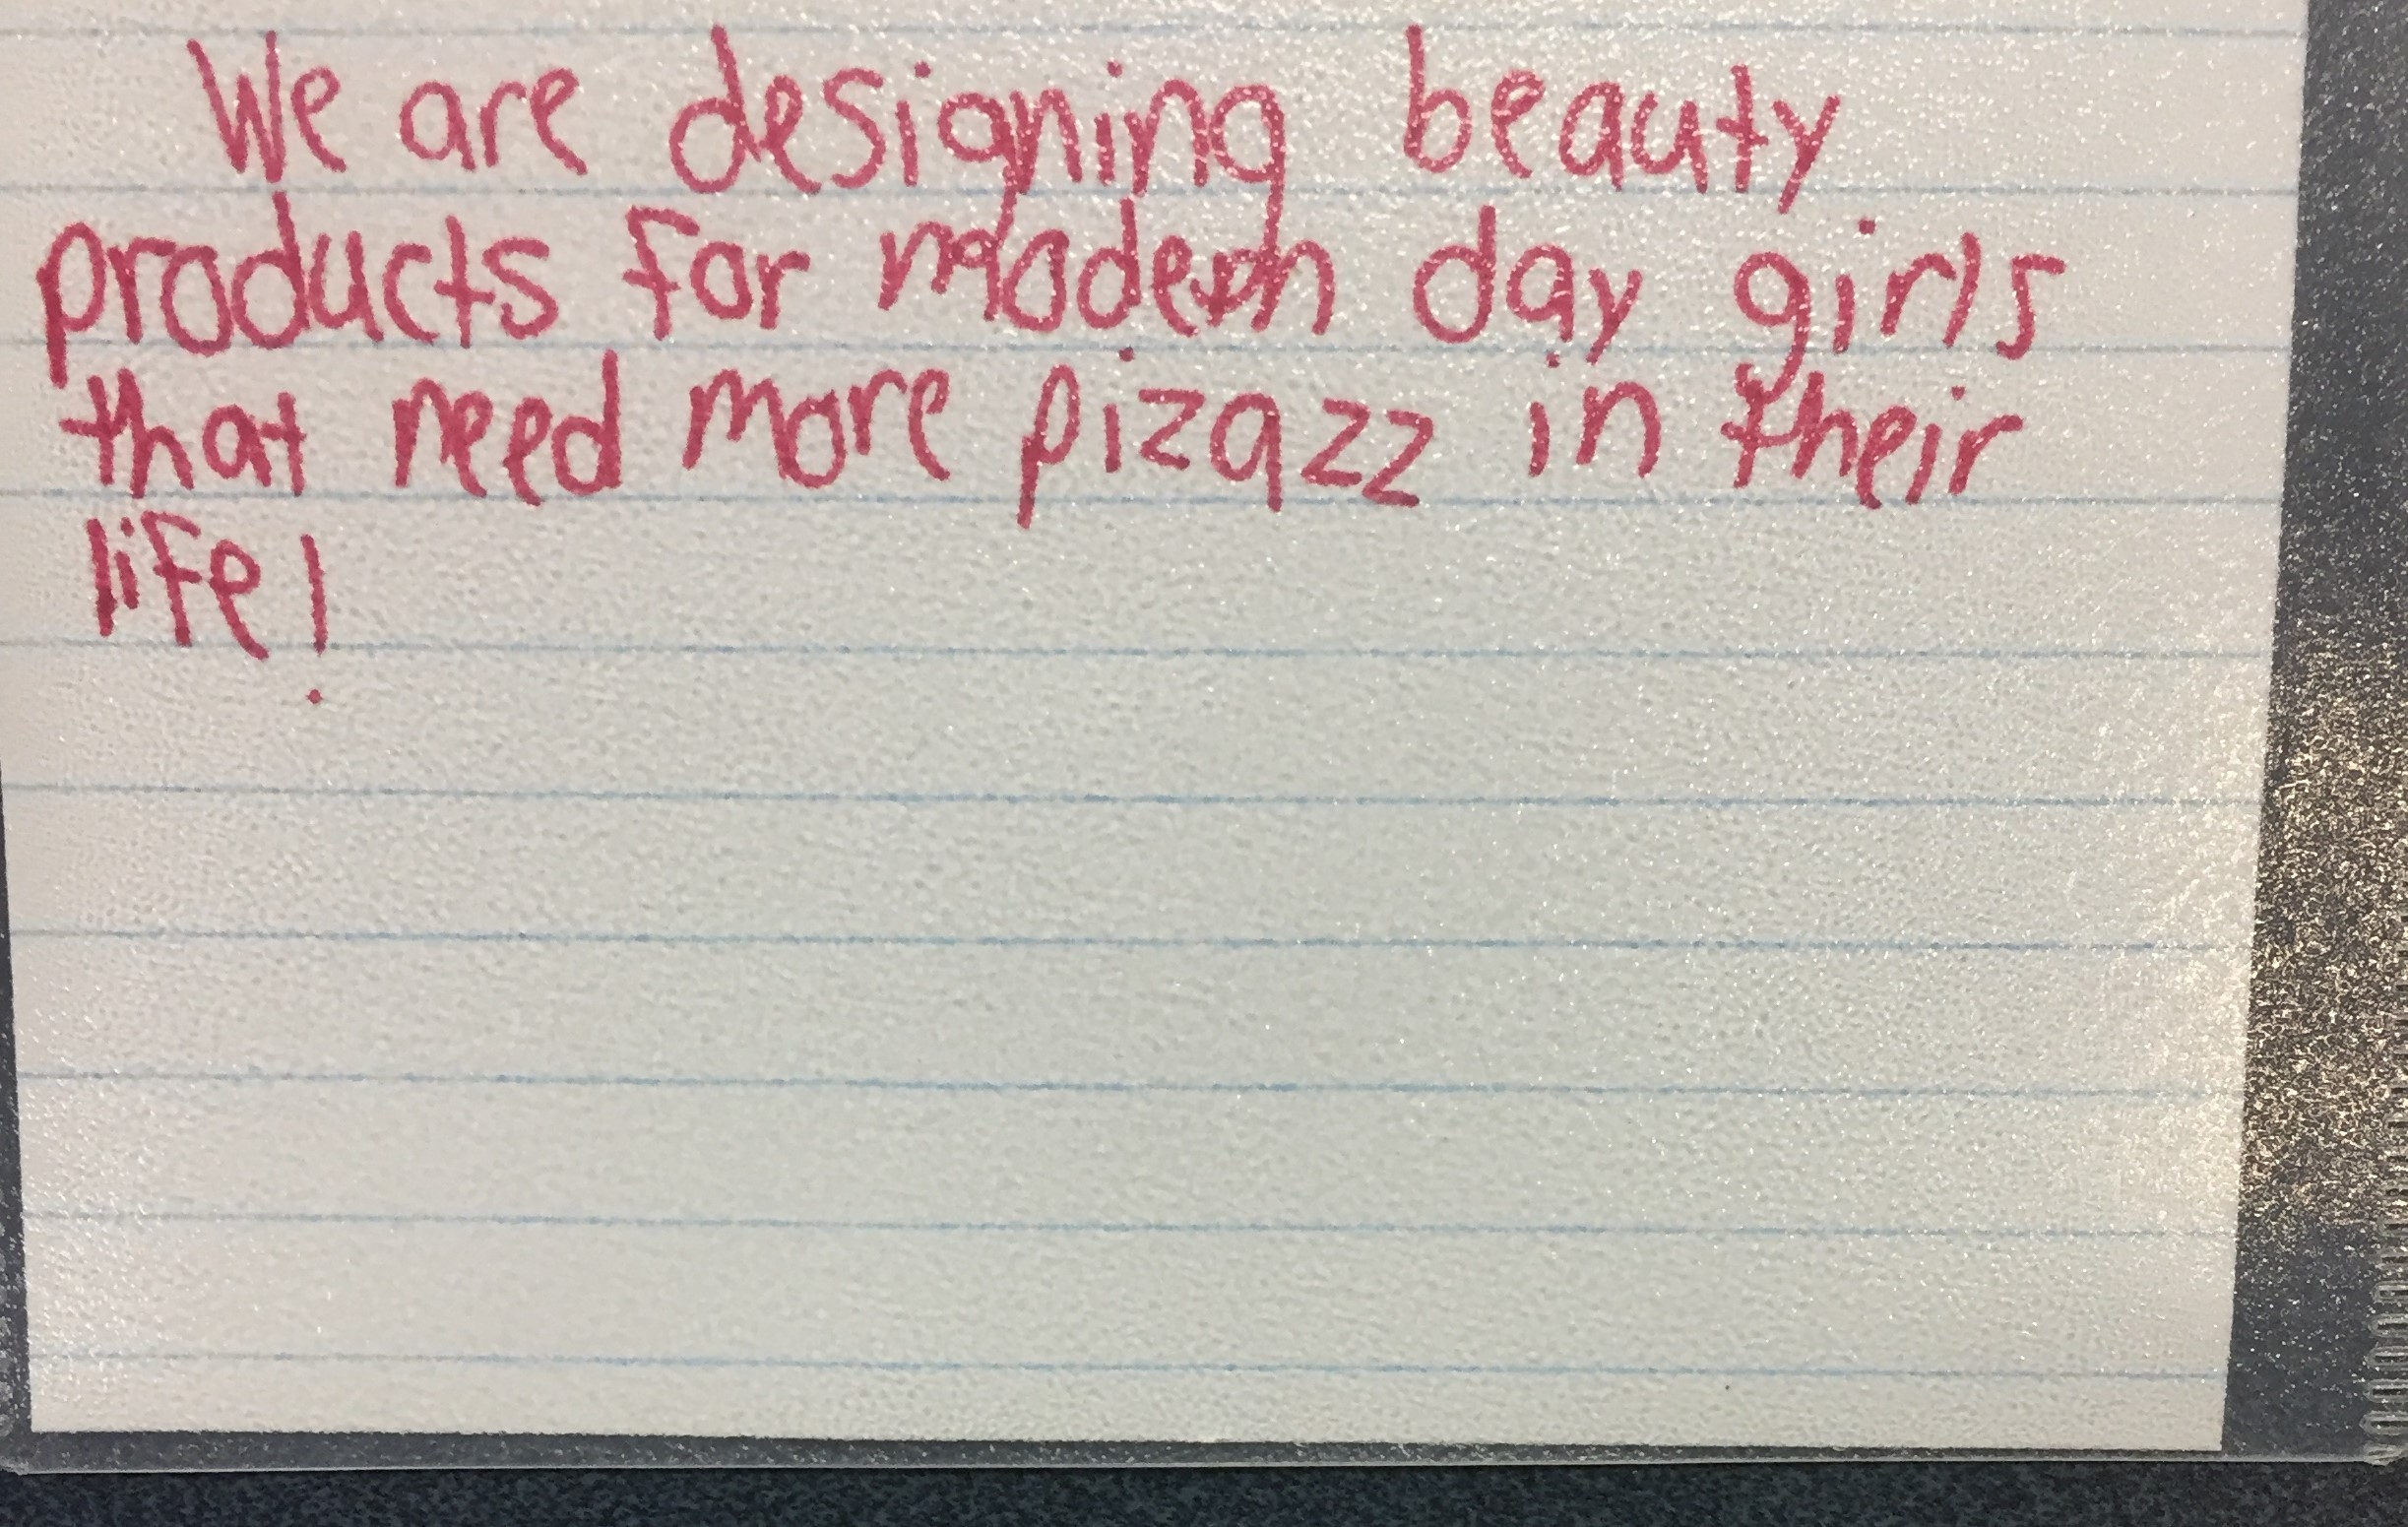 We are designing beauty
products for modern day girls
that need more pizazz in their
life!